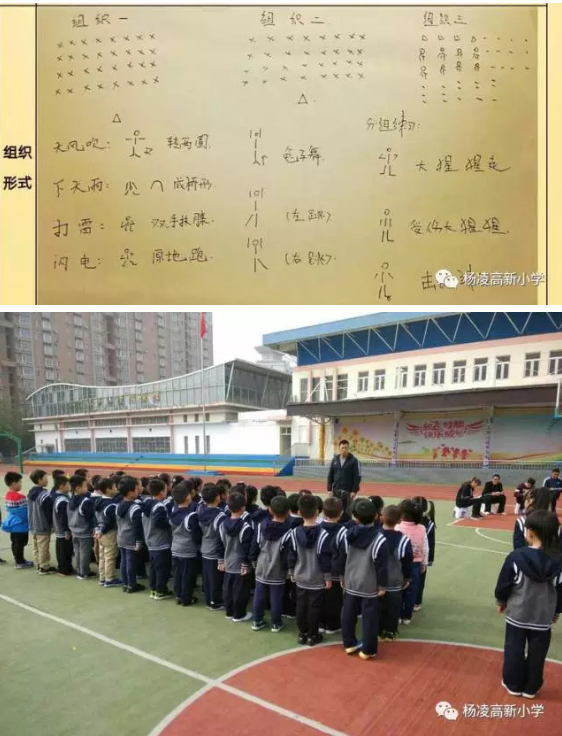 组织一 组织二 组织三
分组练习:
大风吹: 转两圆 兔子舞 大猩猩走
下大雨: 成桥形
打雷: 双手扶膝 (左跳) 受伤大猩猩
闪电: 原地跑 (右跳)
组织
形式
杨凌高新小学
杨凌高新小学